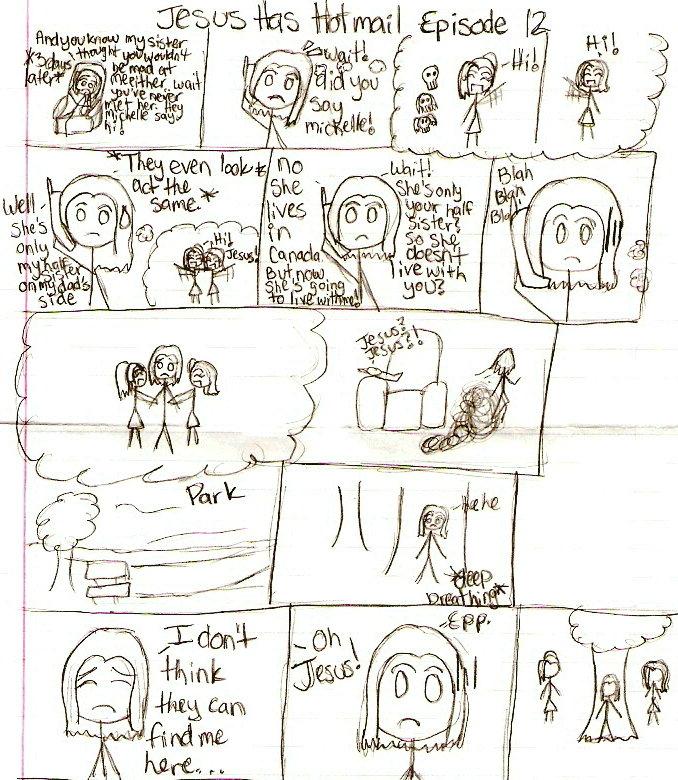 Jesus Has Hotmail Episode 12
*3 days
later*
And you know my sister
thought you wouldn't
be mad at
me either, wait
you've never
met her. Hey
Michelle say
hi!
Wait!
did you
say
mickelle!
-Hi!
Hi!
*They even look*
act the
same. *
Well-
she's
only
my half
sister
on my dad's
side
Hi!
Jesus!
no
she
lives
in
Canada.
But now
she's going
to live with me!
Wait!
She's only
your half
sister?
so she
doesn't
live with
you?
Blah
Blah
Blah
Jesus?
Jesus?!
Park
-Hehe
*deep
breathing*
I don't
think
they can
find me
here...
-Oh
Jesus!
-Epp.